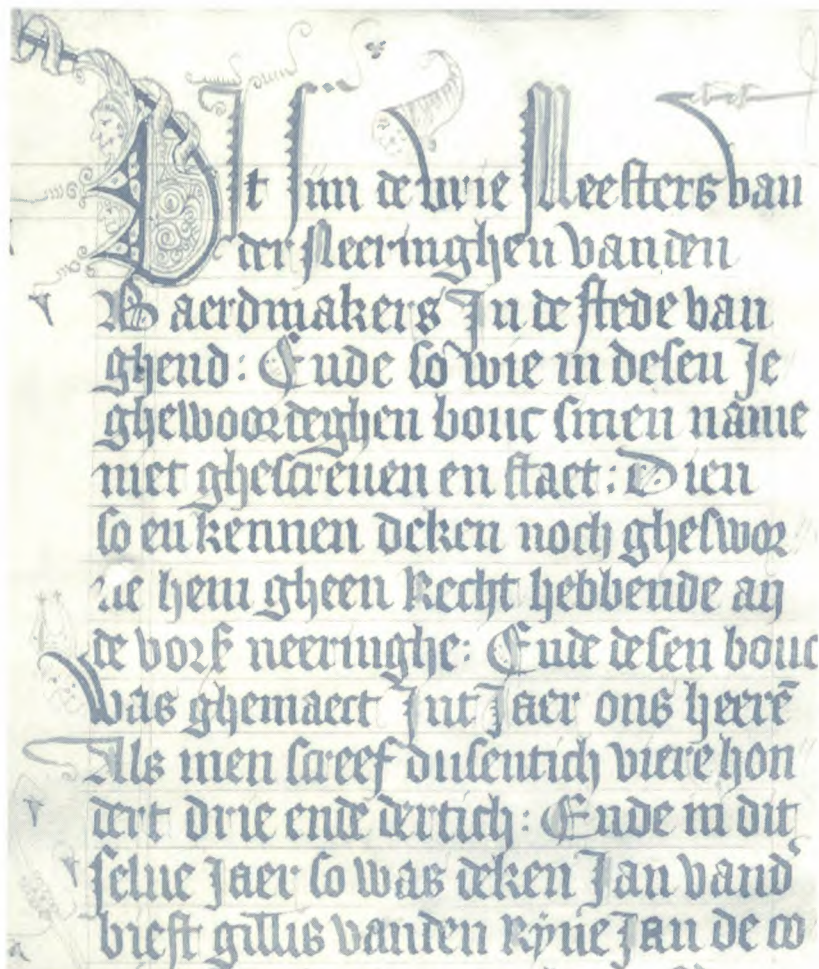 Dit sijn de vrie Meesters van
der Neeringhen vanden
Baerdmakers In de stede van
ghend: Ende so wie in desen Je
ghewoordeghen bouc sinen name
niet ghescreuen en staet: Dien
so en kennen deken noch gheswor
ne hem gheen Recht hebbende an
de vors neeringhe: Ende desen bouc
was ghemaect Int Jaer ons heerē
Als men screef dusentich viere hon
dert drie ende dertich: Ende in dit
selue Jaer so was deken Jan vand
biest gillis vanden Ryne Jan de co